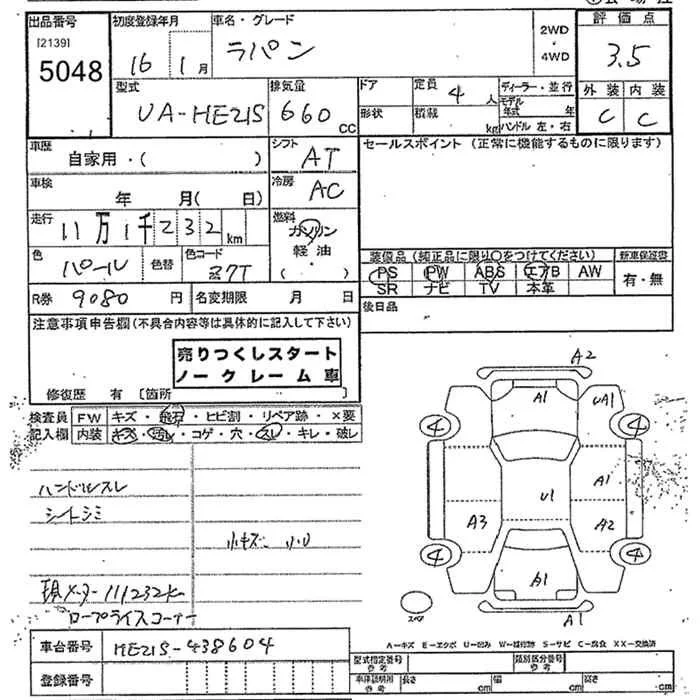 出品番号
[2139]
5048
初度登録年月
16 1月
車名・グレード
ラパン
2WD
・
4WD
評価点
3.5
外装 内装
C C
型式
UA-HE21S
排気量
660 cc
ドア
形状
定員 4 人
積載 kg
ディーラー・並行
モデル年式 年
ハンドル 左・右
車歴
自家用・( )
シフト
AT
車検
年 月( 日)
冷房
AC
走行
11万1千232km
燃料
ガソリン
軽油
( ・ )
色
パール
色替
色コード
Z7T
R券 9080 円
名変期限 月 日
セールスポイント (正常に機能するものに限ります)
装備品(純正品に限り○をつけてください)
PS PW ABS エアB AW
SR ナビ TV 本革
新車保証書
有・無
後日品
注意事項申告欄(不具合内容等は具体的に記入して下さい)
売りつくしスタート
ノークレーム車
修復歴 有 [箇所 ]
検査員
記入欄
FW キズ・飛石・ヒビ割・リペア跡・×要
内装 キズ・汚れ・コゲ・穴・スレ・キレ・破レ
ハンドルスレ
シートシミ
小キズ 小U
現メーター111232km
ロープライスコーナー
A2
A1
UA1
4
4
A1
U1
A3
A2
4
4
A1
A1
スペア
A=キズ E=エクボ U=凹み W=補修跡 S=サビ C=腐食 XX=交換済
車台番号 HE21S-438604
登録番号
型式指定番号
参考
類別区分番号
参考
車体証明用
参考
長さ cm
幅 cm
高さ cm